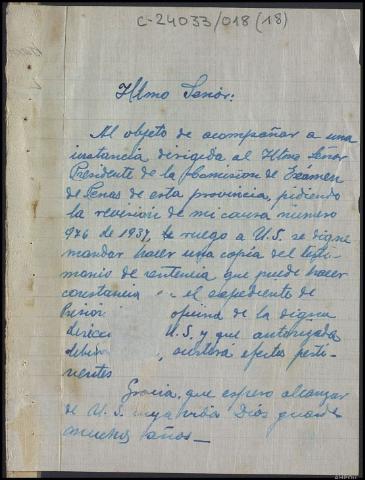 C-24033/018 (18)
Iltmo Señor:
Al objeto de acompañar a una
instancia dirigida al Iltmo Señor
Presidente de la Comision de Exámen
de Penas de esta provincia, pidiendo
la revisión de mi causa numero
976 de 1937, ruego a U.S. se digne
mandar hacer una copia del testi-
monio de sentencia que puede hacer
constancia el expediente de
oficina de la digna
U.S. y que autorizada
surtirá efectos perti-
nentes
Gracia que espero alcanzar
de U.S. cuya vida Dios guarde
muchos años—